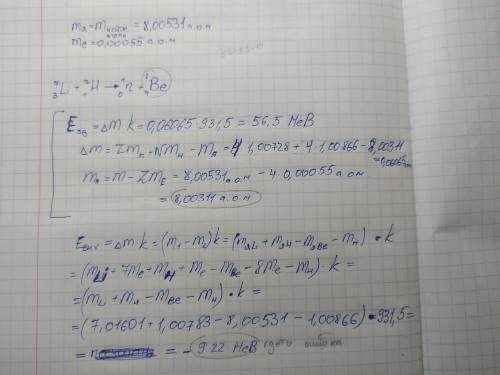 mя = m нейтр. атома = 8,00531 а.о.м
me = 0,00055 а.о.м
⁷₃Li + ²₁H → ¹₀n + ⁸₄Be
Eзв = Δm·k = 0,06065·931,5 = 56,5 МеВ
Δm = Zmp - Nmн - mя = 4·1,00728 + 4·1,00866 - 8,00311 = 0,06065
mя = m - Zme = 8,00531 а.о.м - 4·0,00055 а.о.м
= 8,00311 а.о.м
Eвих = Δm·k = (m₁ - m₂)k = (mяLi + mяH - mяBe - mн)·k
= (mLi + 7me + mH + me - mBe - 8me - mн)·k =
= (mLi + mH - mBe - mн)·k =
= (7,01601 + 1,00783 - 8,00531 - 1,00866)·931,5 =
= = -922 МеВ где то ошибка